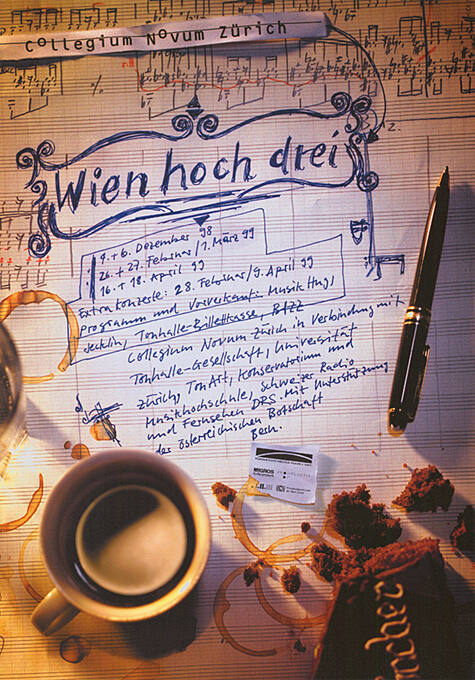 Collegium Novum Zürich
Wien hoch drei
4. + 6. Dezember 98
26. + 27. Februar / 1. März 99
16. + 18. April 99
Extrakonzerte: 28. Februar / 9. April 99
Programm und Vorverkauf: Musik Hug,
Jecklin, Tonhalle-Billettkasse, BIZZ
Collegium Novum Zürich in Verbindung mit
Tonhalle-Gesellschaft, Universität
Zürich, TonArt, Konservatorium und
Musikhochschule, Schweizer Radio
und Fernsehen DRS. Mit Unterstützung
der österreichischen Botschaft
Bern.
MIGROS